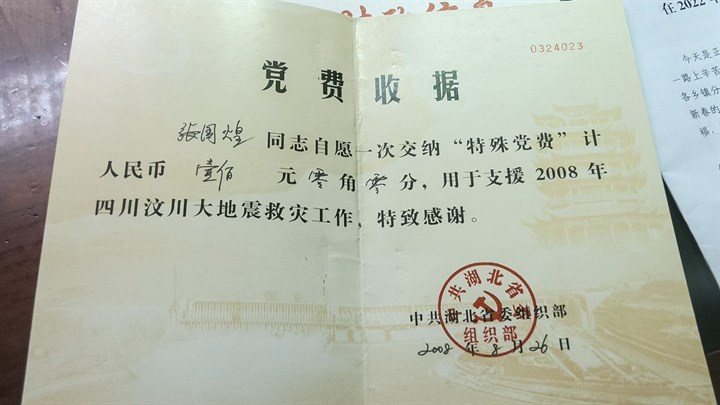 0324023
党费收据
张国煌 同志自愿一次交纳“特殊党费”计
人民币 壹佰 元零角零分，用于支援2008年
四川汶川大地震救灾工作，特致感谢。
中共湖北省委组织部
2008年8月26日
中共湖北省委
组织部
在2022年
今天是正
一路上辛苦
各乡镇分
新春的
福，